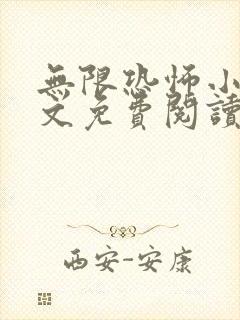 無限恐怖小
文免費閱讀
西安-安康